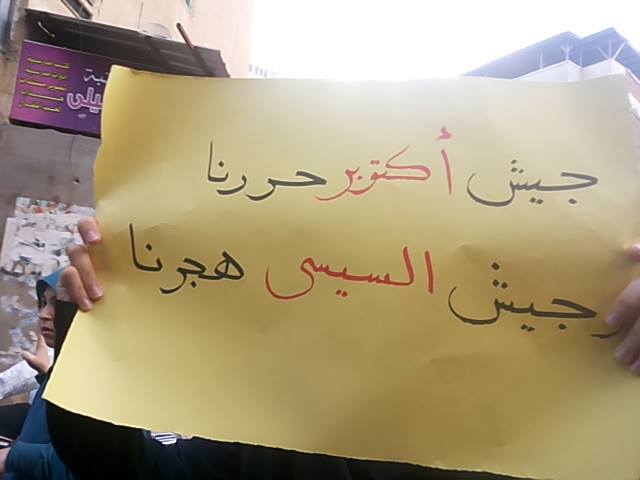 جيش أكتوبر حررنا
وجيش السيسى هجرنا